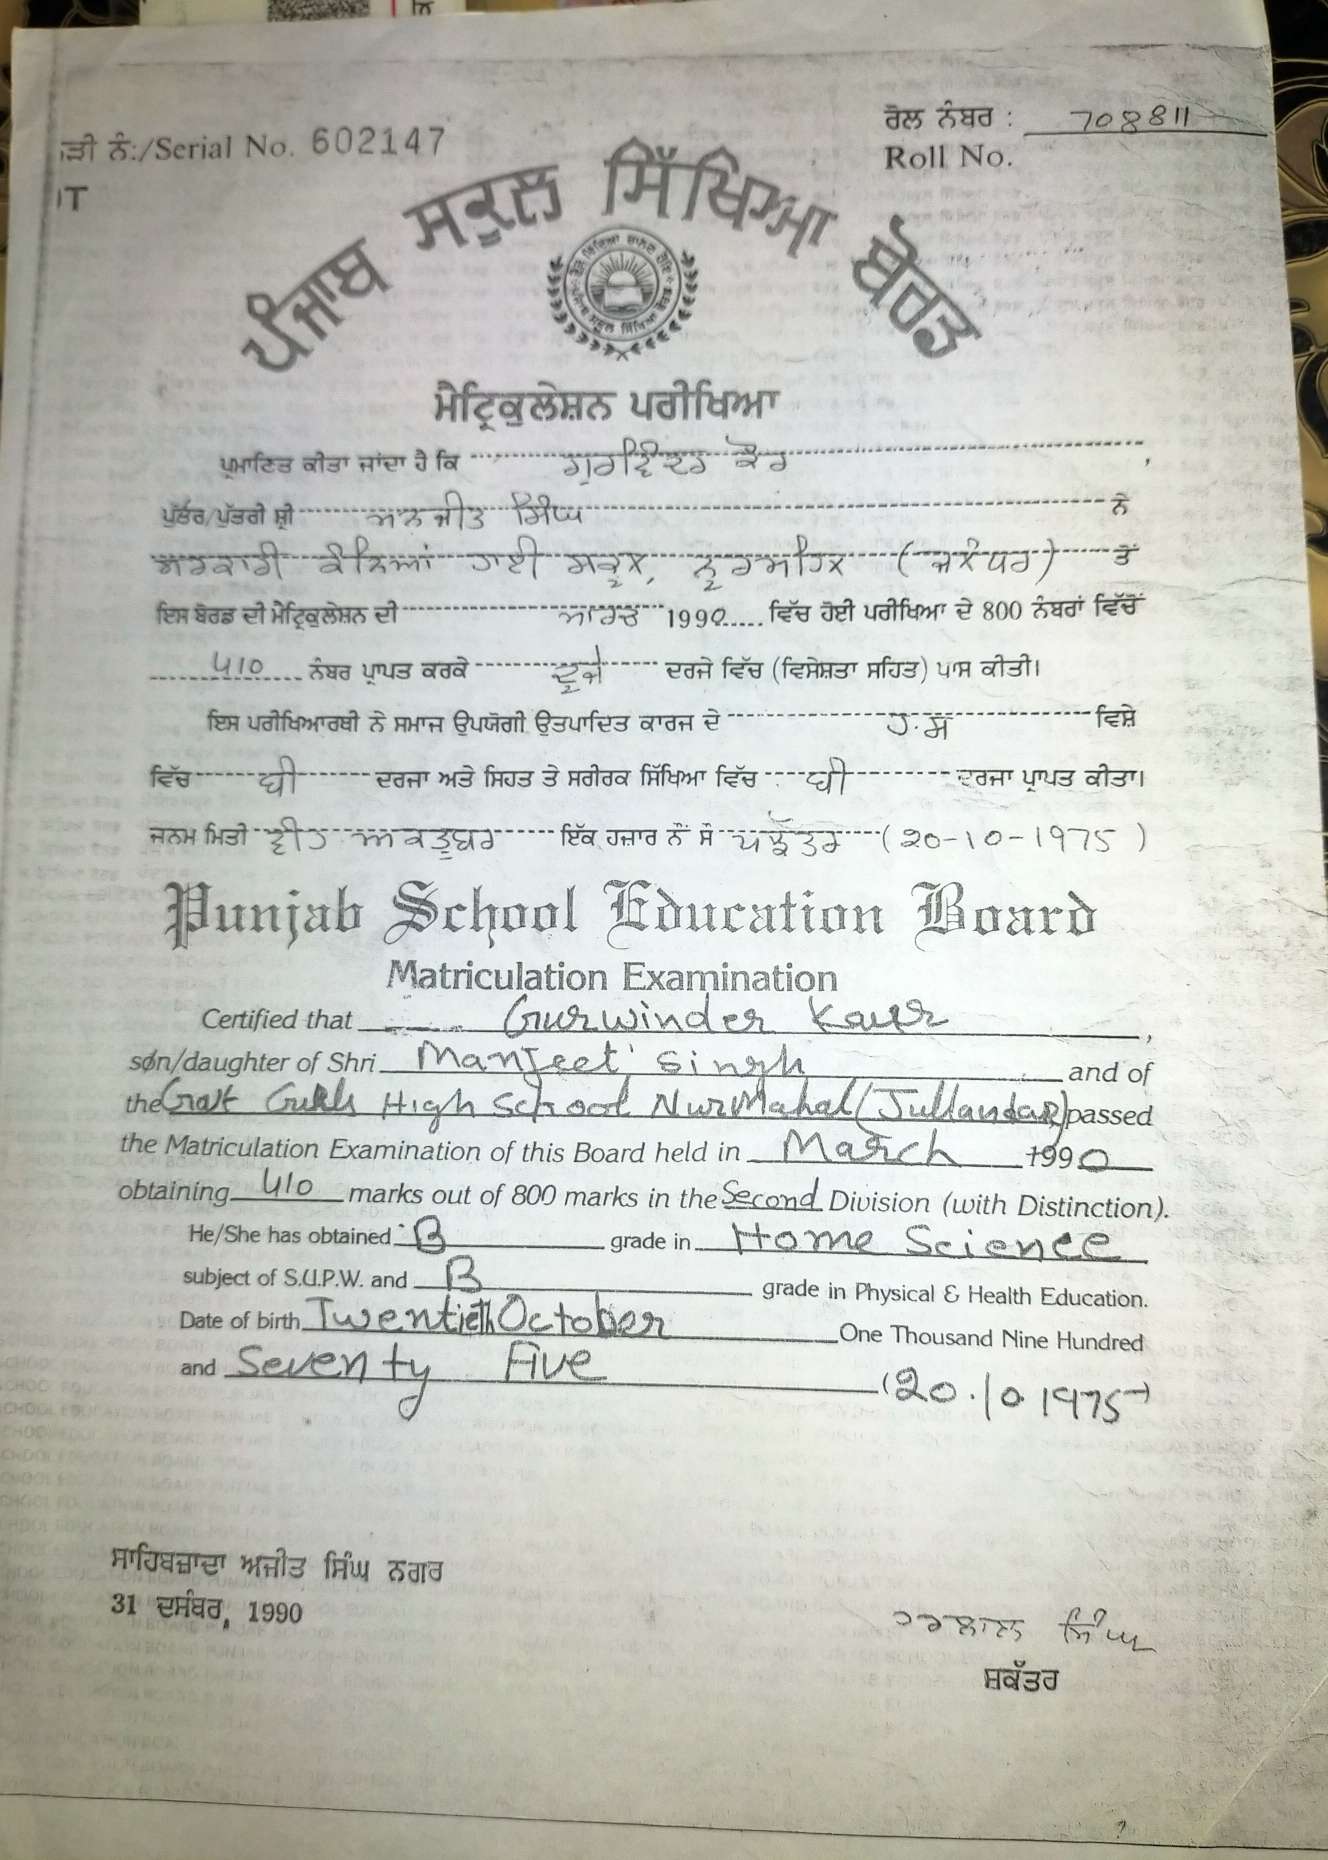 ੜੀ ਨੰ:/Serial No. 602147
ਰੋਲ ਨੰਬਰ : 708811
Roll No.
IT
ਪੰਜਾਬ ਸਕੂਲ ਸਿੱਖਿਆ ਬੋਰਡ
ਮੈਟ੍ਰਿਕੁਲੇਸ਼ਨ ਪਰੀਖਿਆ
ਪ੍ਰਮਾਣਿਤ ਕੀਤਾ ਜਾਂਦਾ ਹੈ ਕਿ ਗੁਰਵਿੰਦਰ ਕੌਰ,
ਪੁੱਤਰ/ਪੁੱਤਰੀ ਸ਼੍ਰੀ ਮਨਜੀਤ ਸਿੰਘ ਨੇ
ਸਰਕਾਰੀ ਕੰਨਿਆਂ ਹਾਈ ਸਕੂਲ, ਨੂਰਮਹਿਲ (ਜਲੰਧਰ) ਤੋਂ
ਇਸ ਬੋਰਡ ਦੀ ਮੈਟ੍ਰਿਕੁਲੇਸ਼ਨ ਦੀ ਮਾਰਚ 1990 ਵਿੱਚ ਹੋਈ ਪਰੀਖਿਆ ਦੇ 800 ਨੰਬਰਾਂ ਵਿੱਚੋਂ
410 ਨੰਬਰ ਪ੍ਰਾਪਤ ਕਰਕੇ ਦੂਜੇ ਦਰਜੇ ਵਿੱਚ (ਵਿਸੇਸ਼ਤਾ ਸਹਿਤ) ਪਾਸ ਕੀਤੀ।
ਇਸ ਪਰੀਖਿਆਰਥੀ ਨੇ ਸਮਾਜ ਉਪਯੋਗੀ ਉਤਪਾਦਿਤ ਕਾਰਜ ਦੇ ਹ.ਸ ਵਿਸ਼ੇ
ਵਿੱਚ ਬੀ ਦਰਜਾ ਅਤੇ ਸਿਹਤ ਤੇ ਸਰੀਰਕ ਸਿੱਖਿਆ ਵਿੱਚ ਬੀ ਦਰਜਾ ਪ੍ਰਾਪਤ ਕੀਤਾ।
ਜਨਮ ਮਿਤੀ ਵੀਹ ਅਕਤੂਬਰ ਇੱਕ ਹਜ਼ਾਰ ਨੌਂ ਸੌ ਪਝੱਤਰ (20-10-1975)
Punjab School Education Board
Matriculation Examination
Certified that Gurwinder Kaur,
son/daughter of Shri Manjeet Singh and of
the Govt Girls High School Nurmahal (Jullandar) passed
the Matriculation Examination of this Board held in March 1990
obtaining 410 marks out of 800 marks in the Second Division (with Distinction).
He/She has obtained B grade in Home Science
subject of S.U.P.W. and B grade in Physical & Health Education.
Date of birth Twentieth October One Thousand Nine Hundred
and Seventy Five (20.10.1975)
ਸਾਹਿਬਜ਼ਾਦਾ ਅਜੀਤ ਸਿੰਘ ਨਗਰ
31 ਦਸੰਬਰ, 1990
ਹਰਲਾਲ ਸਿੰਘ
ਸਕੱਤਰ